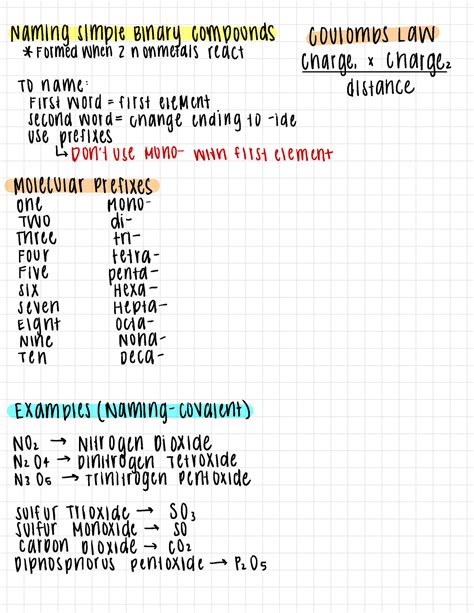 Naming Simple Binary Compounds
* Formed when 2 nonmetals react
To name:
First word = first element
Second word = change ending to -ide
Use prefixes
↳ Don't use mono- with first element
Coulombs Law
charge₁ x charge₂
distance
Molecular Prefixes
One mono-
Two di-
Three tri-
Four tetra-
Five penta-
Six Hexa-
Seven Hepta-
Eight Octa-
Nine Nona-
Ten Deca-
Examples (Naming-covalent)
NO₂ → Nitrogen Dioxide
N₂O₄ → Dinitrogen Tetroxide
N₃O₅ → Trinitrogen Pentoxide
Sulfur Trioxide → SO₃
Sulfur Monoxide → SO
Carbon Dioxide → CO₂
Diphosphorus pentoxide → P₂O₅